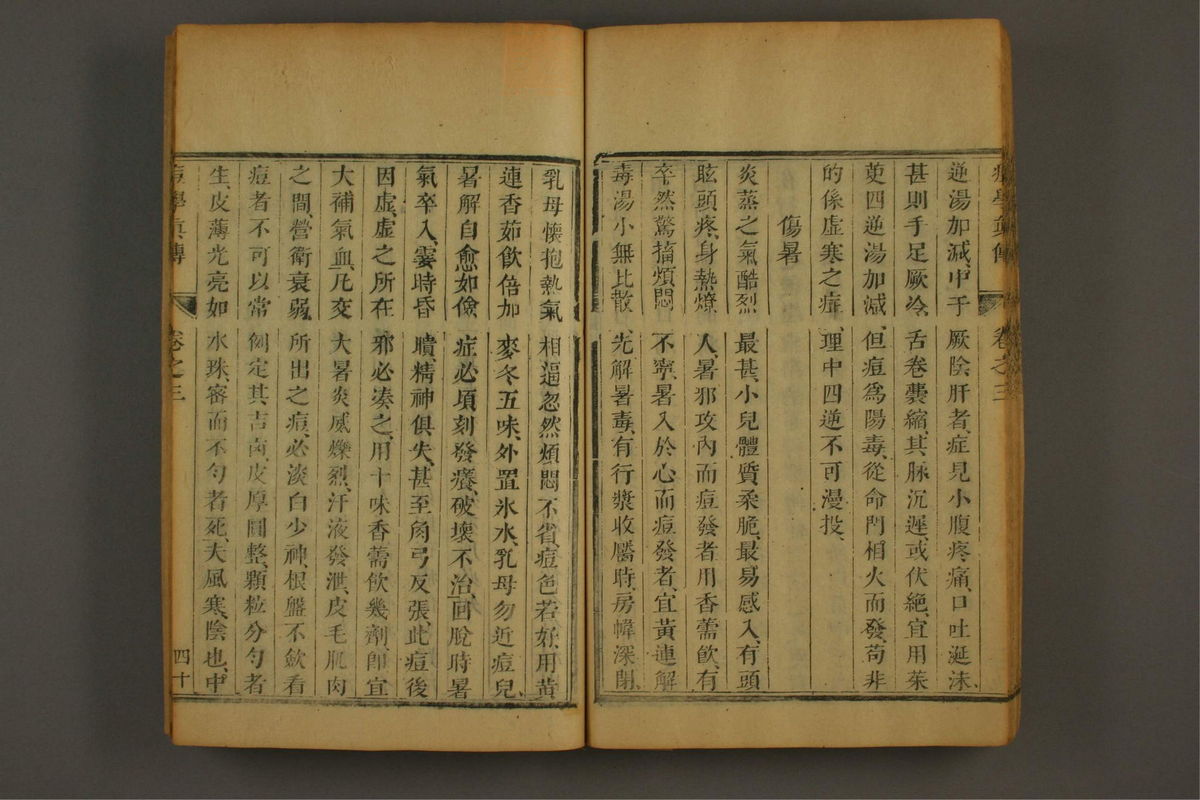 逆湯加減中于厥陰肝者症見小腹疼痛口吐涎沫
甚則手足厥冷舌卷囊縮其脉沉遲或伏絕宜用茱
萸四逆湯加減但痘爲陽毒從命門相火而發苟非
的係虛寒之症理中四逆不可漫投
傷暑
炎蒸之氣酷烈最甚小兒體質柔脆最易感入有頭
眩頭疼身熱燎人暑邪攻內而痘發者用香薷飲有
卒然驚搐煩悶不寧暑入於心而痘發者宜黃連解
毒湯小無比散先解暑毒有行漿收靨時房幃深閉
乳母懷抱熱氣相逼忽然煩悶不省痘色若好用黃
連香茹飲倍加麥冬五味外置氷水乳母勿近痘兒
暑解自愈如儉症必頃刻發癢破壞不治回脫時暑
氣卒入霎時昏憒精神俱失甚至角弓反張此痘後
因虛虛之所在邪必湊之用十味香薷飲幾劑卽宜
大補氣血凡交大暑炎威爍烈汗液發泄皮毛肌肉
之間營衛衰弱所出之痘必淡白少神根盤不斂看
痘者不可以常例定其吉凶皮厚圓整顆粒分勻者
生皮薄光亮如水珠密而不勻者死夫風寒陰也中
痘學眞傳 卷之三 四十